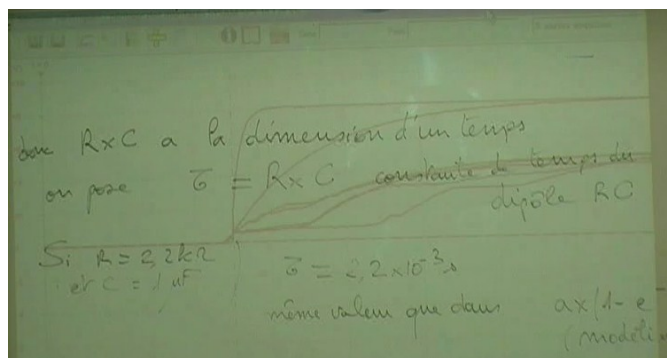 donc R×C a la dimension d'un temps
on pose τ = R×C constante de temps du
dipôle RC
Si R = 2,2 kΩ
et C = 1 µF
τ = 2,2×10⁻³ s
même valeur que dans a×(1-e
(modéli